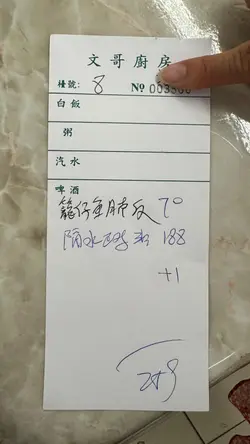 文哥廚房
檯號: 8 Nº 003
白飯
粥
汽水
啤酒
籠仔魚腩飯 70
隔水 188
+1